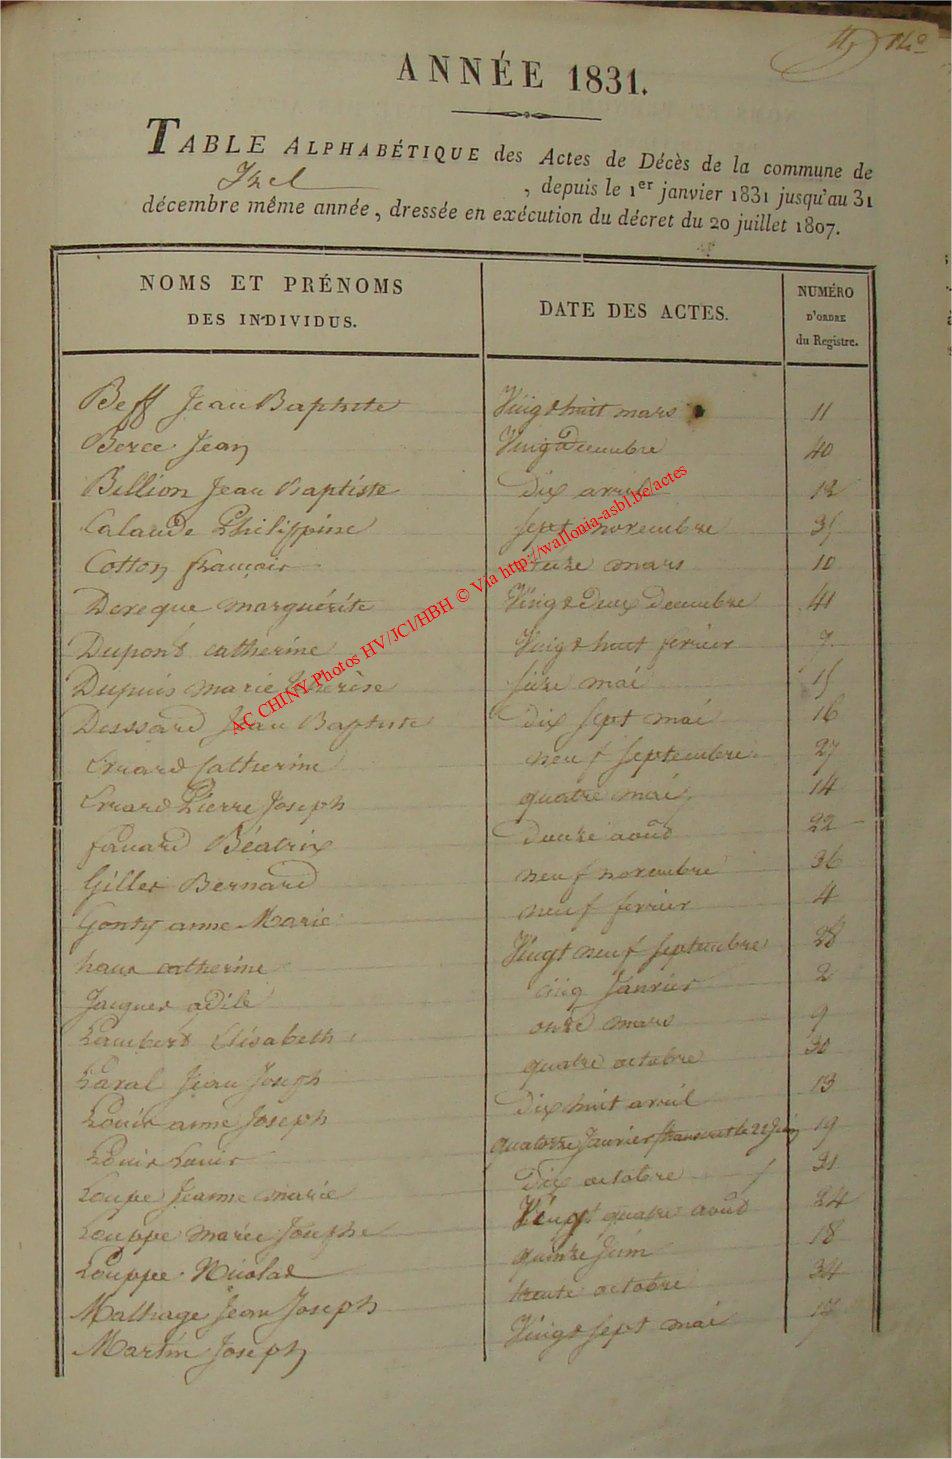 14e
ANNÉE 1831.
TABLE ALPHABÉTIQUE des Actes de Décès de la commune de
Izel , depuis le 1er janvier 1831 jusqu'au 31
décembre même année, dressée en exécution du décret du 20 juillet 1807.
NOMS ET PRÉNOMS
DES INDIVIDUS.
DATE DES ACTES.
NUMÉRO
D'ORDRE
du Registre.
Beff Jean Baptiste Vingt huit mars 11
Berce Jean Vingt Decembre 40
Billion Jean Baptiste Dix avril 12
Calande Philippine sept novembre 35
Cotton françois onze mars 10
Dereque marguérite Vingt Deux Decembre 41
Dupont catherine Vingt huit fevrier 7
Dupuis marie thérèse seize mai 15
Dussard Jean Baptiste Dix sept mai 16
Erard Catherine neuf septembre 27
Erard Pierre Joseph quatre mai 14
fanard Béatrix Douze aoud 22
Gilles Bernard neuf novembre 36
Gonty anne Marie neuf fevrier 4
haus catherine Vingt neuf septembre 28
Jacques adile cinq Janvier 2
Lambert Elisabeth onze mars 9
Laval Jean Joseph quatre octobre 30
Louis anne Joseph Dix huit avril 13
Louis Louis quatorze Janvier transcrit le 22 Juin 19
Loupe Jeanne marie Dix octobre 31
Louppe marie Josephe Vingt quatre aoud 24
Louppe Nicolas quinze Juin 18
Malhage Jean Joseph trente octobre 34
Martin Joseph Vingt sept mai 17
AC CHINY Photos HV/JCl/HBH © Via http://wallonia-asbl.be/actes